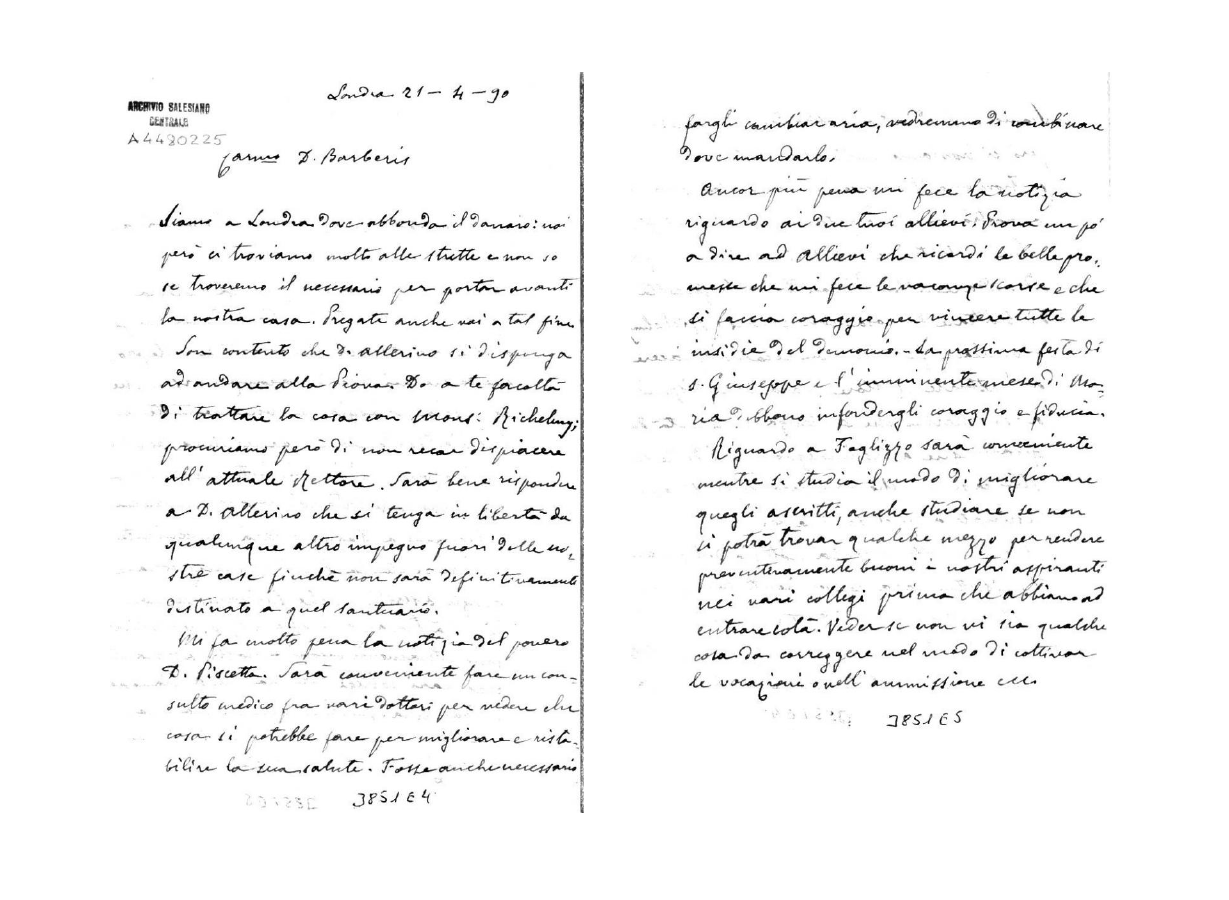 Londra 21 - 4 - 90
ARCHIVIO SALESIANO
CENTRALE
A4480225
Carmo D. Barberis
Siamo a Londra dove abbonda il danaro: noi
però ci troviamo molto alle strette e non so
se troveremo il necessario per portar avanti
la nostra casa. Pregate anche voi a tal fine.
Son contento che D. Allerino si disponga
ad andare alla Piova. Do a te facoltà
di trattare la cosa con Mons: Richelmy;
procuriamo però di non recar dispiacere
all' attuale Rettore. Sarà bene rispondere
a D. Allerino che si tenga in libertà da
qualunque altro impegno fuori delle no-
stre case finchè non sarà definitivamente
destinato a quel santuario.
Mi fa molto pena la notizia del povero
D. Piscetta. Sarà conveniente fare un con-
sulto medico fra vari dottori per vedere che
cosa si potrebbe fare per migliorare e rista-
bilire la sua salute. Fosse anche necessario
3851 E 4
fargli cambiar aria, vedremmo di combinare
dove mandarlo.
Ancor più pena mi fece la notizia
riguardo ai due tuoi allievi. Prova un pó
a dire ad Allievi che ricordi le belle pro-
messe che mi fece le vacanze scorse e che
si faccia coraggio per vincere tutte le
insidie del demonio. - La prossima festa di
S. Giuseppe e l'imminente mese di Ma-
ria debbono infondergli coraggio e fiducia.
Riguardo a Foglizzo sarà conveniente
mentre si studia il modo di migliorare
quegli ascritti, anche studiare se non
si potrà trovar qualche mezzo per rendere
preventivamente buoni i nostri aspiranti
nei vari collegi prima che abbiano ad
entrare colà. Veder se non vi sia qualche
cosa da correggere nel modo di coltivar
le vocazioni o nell' ammissione ecc.
3851 E 5